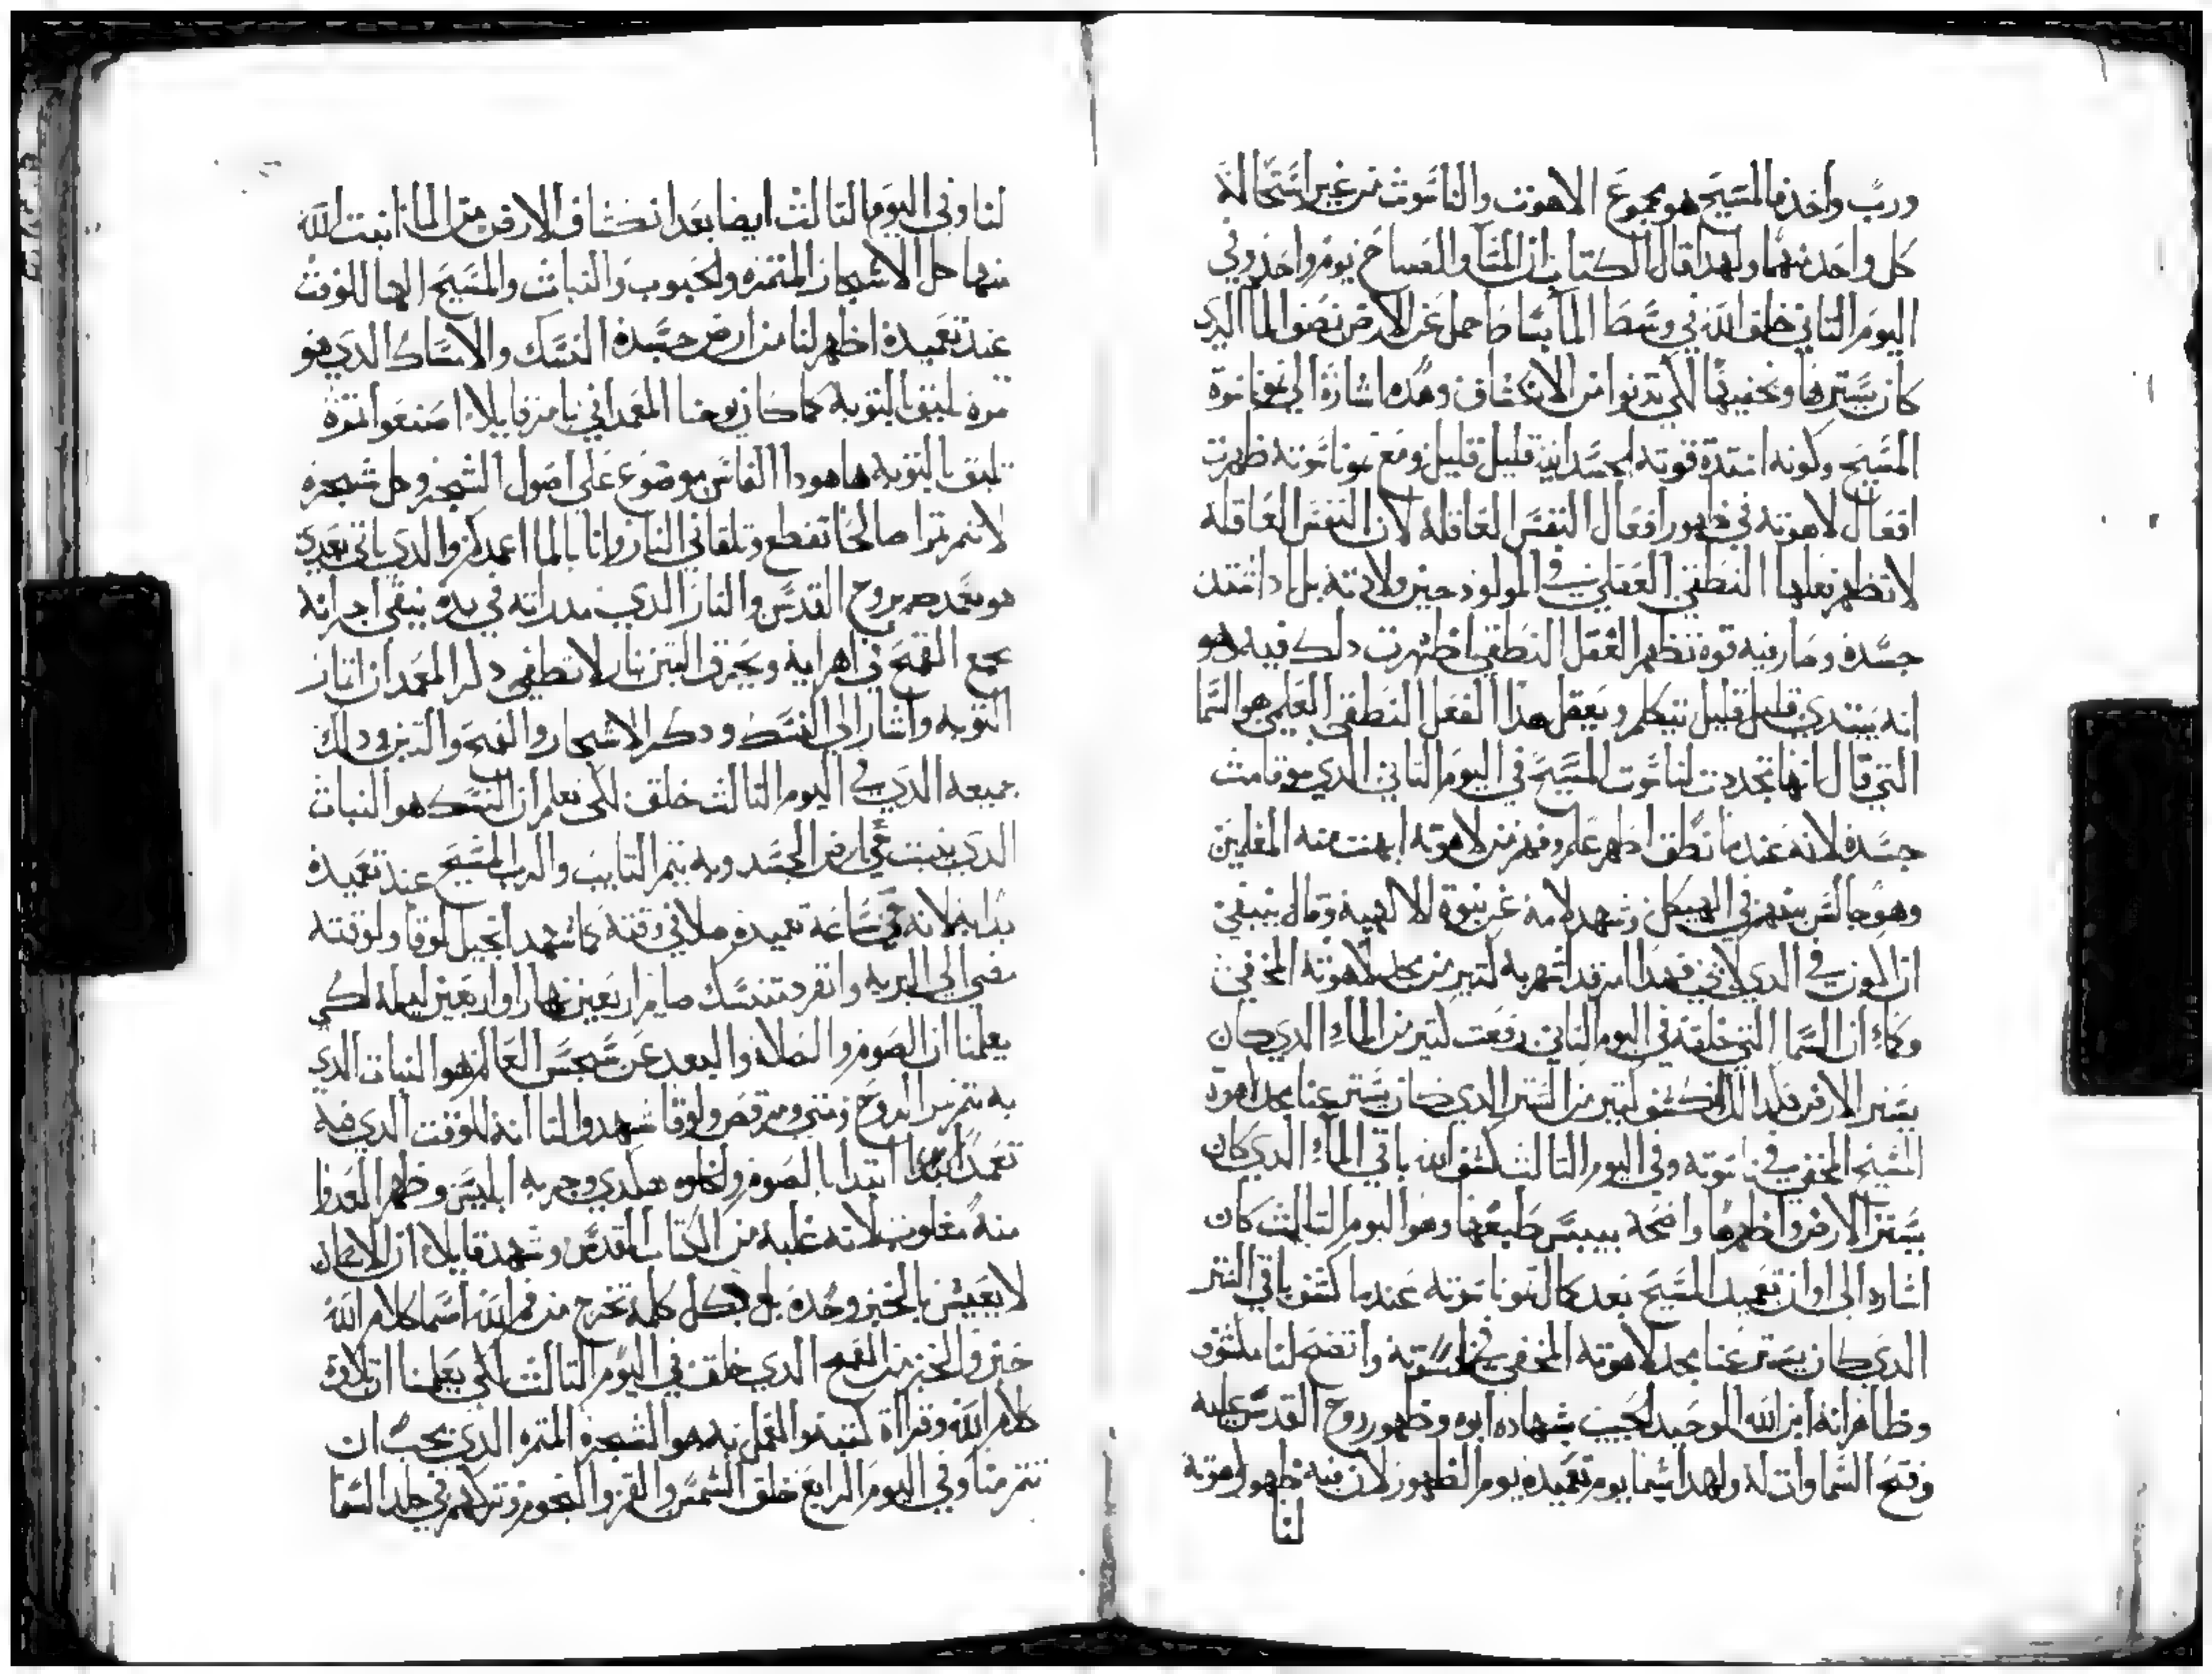 ورب واحد فالمسيح هو مجموع الاهوت والناسوت من غير استحالة
كل واحد منهما ولهدا قال الكتاب ان المسا والصباح يوم واحد وفي
اليوم التاني خلق الله في وسط الما بساطا حمل عن الارض نصف الما الدي
كان يسترها ويخفيها لكي تدنوا من الانكشاف وهده اشارة الي نمو ناسوة
المسيح وكونه اشتدة قوته الجسدانية قليل قليل ومع نمو ناسوته ظهرت
افعال لاهوته في ظهور افعال النفس العاقلة لان النفس العاقلة
لا تظهر فعلها النطقي العقلي في المولود حين ولادته بل ادا اشتد
جسده وصار فيه قوه تظهر العقل النطقي اظهرت دلك فيه لاهو
انه يبتدي قليل قليل يتكلم ويعقل هدا الفعل النطقي العقلي هو السما
التي قال انها تجددت لناسوت المسيح في اليوم التاني الدي هو قامت
جسده لانه عندما نطق اظهر علم وفهم من لاهوته ابهتت منه المعلمين
وهو جالس بينهم في الهيكل وشهد لامه عن بنوة للالهيه وقال ينبغي
ان اكون في الدي لابي فهدا امر قد اشهر به لتير من مجد لاهوته المخفي
وكما ان السما التي خلقة في اليوم التاني رفعت لتير من الماء الدي كان
يستر الارض فلدلك انكشف لتير من الستر الدي كان يستر عنا مجد لاهوة
المسيح المخفي في ناسوته وفي اليوم التالت كشف الله باقي الماء الدي كان
يستر الارض واظهرها واضحة بيبس طبيعها وهو اليوم التالت كان
اشاره الي اوان تعميد المسيح بعد كمال نمو ناسوته عندما كشف باقي الستر
الدي كان يستر عنا مجد لاهوته المخفي في ناسوته واتضح لنا مكشوف
وظاهر انه ابن الله الوحيد الحبيب بشهاده ابوه وظهور روح القدس عليه
وفتح السماوات له ولهدا سما يوم تعميده يوم الظهور لان فيه ظهر لاهوته
لنا
لنا وفي اليوم التالت ايضا بعد انكشاف الارض من الما انبت الله
منها كل الاشجار المتمره والحبوب والنبات والمسيح الهنا للوقت
عند تعميده اظهر لنا من ارض جسده النسك والامساك الدي هو
تمرة تليق بالتوبه كما كان يوحنا المعمداني يامر قايلا اصنعوا تمرة
تليق بالتوبه هاهودا الفاس موضوع علي اصول الشجر وكل شجره
لا تتمر تمرا صالحا تقطع وتلقا في النار وانا بالما اعمدكم والدي ياتي بعدي
هو يعمدكم بروح القدس والنار الدي مدراته في يده ينقي اجرانه
يجمع القمح في اهرايه ويحرق التبن بنار لا تطفي دكر المعمدان اتمار
التوبه واشار الي النسك ودكر الاشجار والقمح والتبن ودلك
جميعه الدي في اليوم التالت خلق لكي نعلم ان النسك هو النبات
الدي ينبت في ارض الجسد وبه يتم التايب والرب المسيح عند تعميده
بدا به لانه في ساعة تعميده صلا في وقته كما شهد انجيل لوقا ولوقته
مضي الي البريه وانفرد متنسك صايم اربعين نهار واربعين ليلة لكي
يعلمنا ان الصوم والصلاة والبعد عن سجس العالم هو النبات الدي
به تتم تمر الروح ومتي ومرقص ولوقا شهدوا لنا انه للوقت الدي فيه
تعمد ابتدا بالصوم والخلوه وجربه ابليس وظهر العدوا
منه مغلوب لانه غلبه من الكتاب المقدس وشهد قايلا ان الانسان
لا يعيش بالخبز وحده بل بكل كلمة تخرج من فم الله اسما كلام الله
خبز والخبز من القمح الدي خلق في اليوم التالت لكي يعلمنا ان تلاوة
كلام الله وقراة كتبه والعمل به هو الشجرة المتمره الدي يجب ان
تتمر منا وفي اليوم الرابع خلق الشمس والقمر والنجوم وتركهم في جلد السما